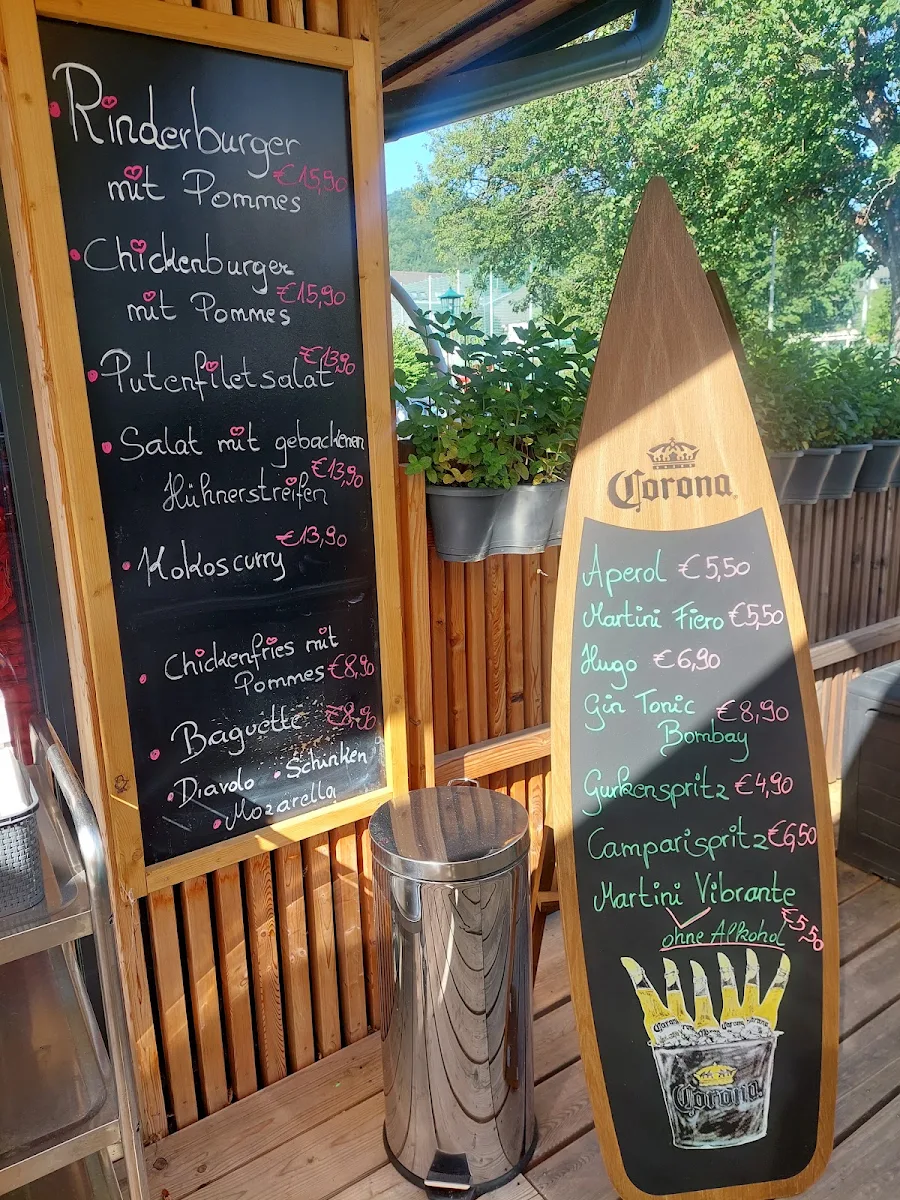 Rinderburger
mit Pommes €15,90
Chickenburger
mit Pommes €15,90
Putenfiletsalat €13,90
Salat mit gebackenen
Hühnerstreifen €13,90
Kokoscurry €13,90
Chickenfries mit
Pommes €8,90
Baguette €8,90
• Diavolo • Schinken
• Mozarella
Corona
Aperol €5,50
Martini Fiero €5,50
Hugo €6,90
Gin Tonic €8,90
Bombay
Gurkenspritz €4,90
Camparispritz €6,50
Martini Vibrante
ohne Alkohol €5,50
Corona Corona Corona
Corona